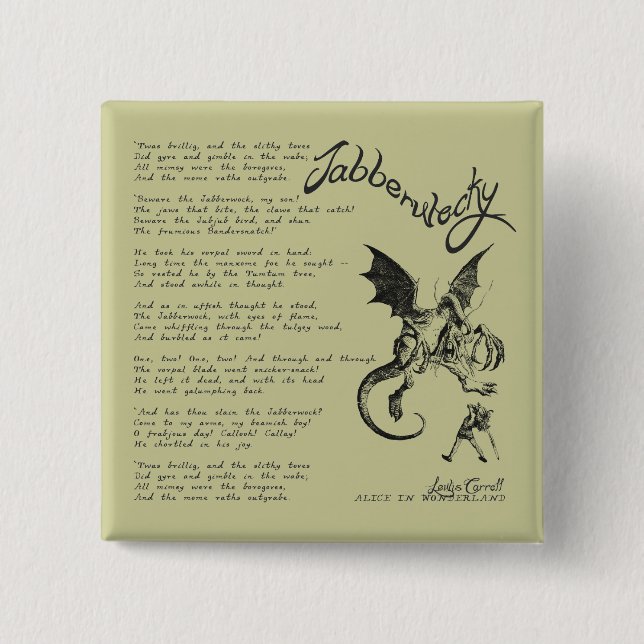 `Twas brillig, and the slithy toves
Did gyre and gimble in the wabe;
All mimsy were the borogoves,
And the mome raths outgrabe.
`Beware the Jabberwock, my son!
The jaws that bite, the claws that catch!
Beware the Jubjub bird, and shun
The frumious Bandersnatch!'
He took his vorpal sword in hand:
Long time the manxome foe he sought --
So rested he by the Tumtum tree,
And stood awhile in thought.
And as in uffish thought he stood,
The Jabberwock, with eyes of flame,
Came whiffling through the tulgey wood,
And burbled as it came!
One, two! One, two! And through and through
The vorpal blade went snicker-snack!
He left it dead, and with its head
He went galumphing back.
`And has thou slain the Jabberwock?
Come to my arms, my beamish boy!
O frabjous day! Callooh! Callay!
He chortled in his joy.
`Twas brillig, and the slithy toves
Did gyre and gimble in the wabe;
All mimsy were the borogoves,
And the mome raths outgrabe.
Jabberwocky
Lewis Carroll
ALICE IN WONDERLAND